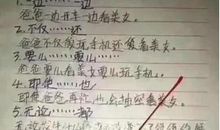 1. 一边……一边
爸爸一边开车一边看美女。
2. 不仅……还
爸爸不仅爱玩手机还爱看美女。
3. 要么……要么
爸爸要么看美女要么玩手机。
4. 即使……也
即使爸爸再忙,也会抽空看美女。
5. 无论……都